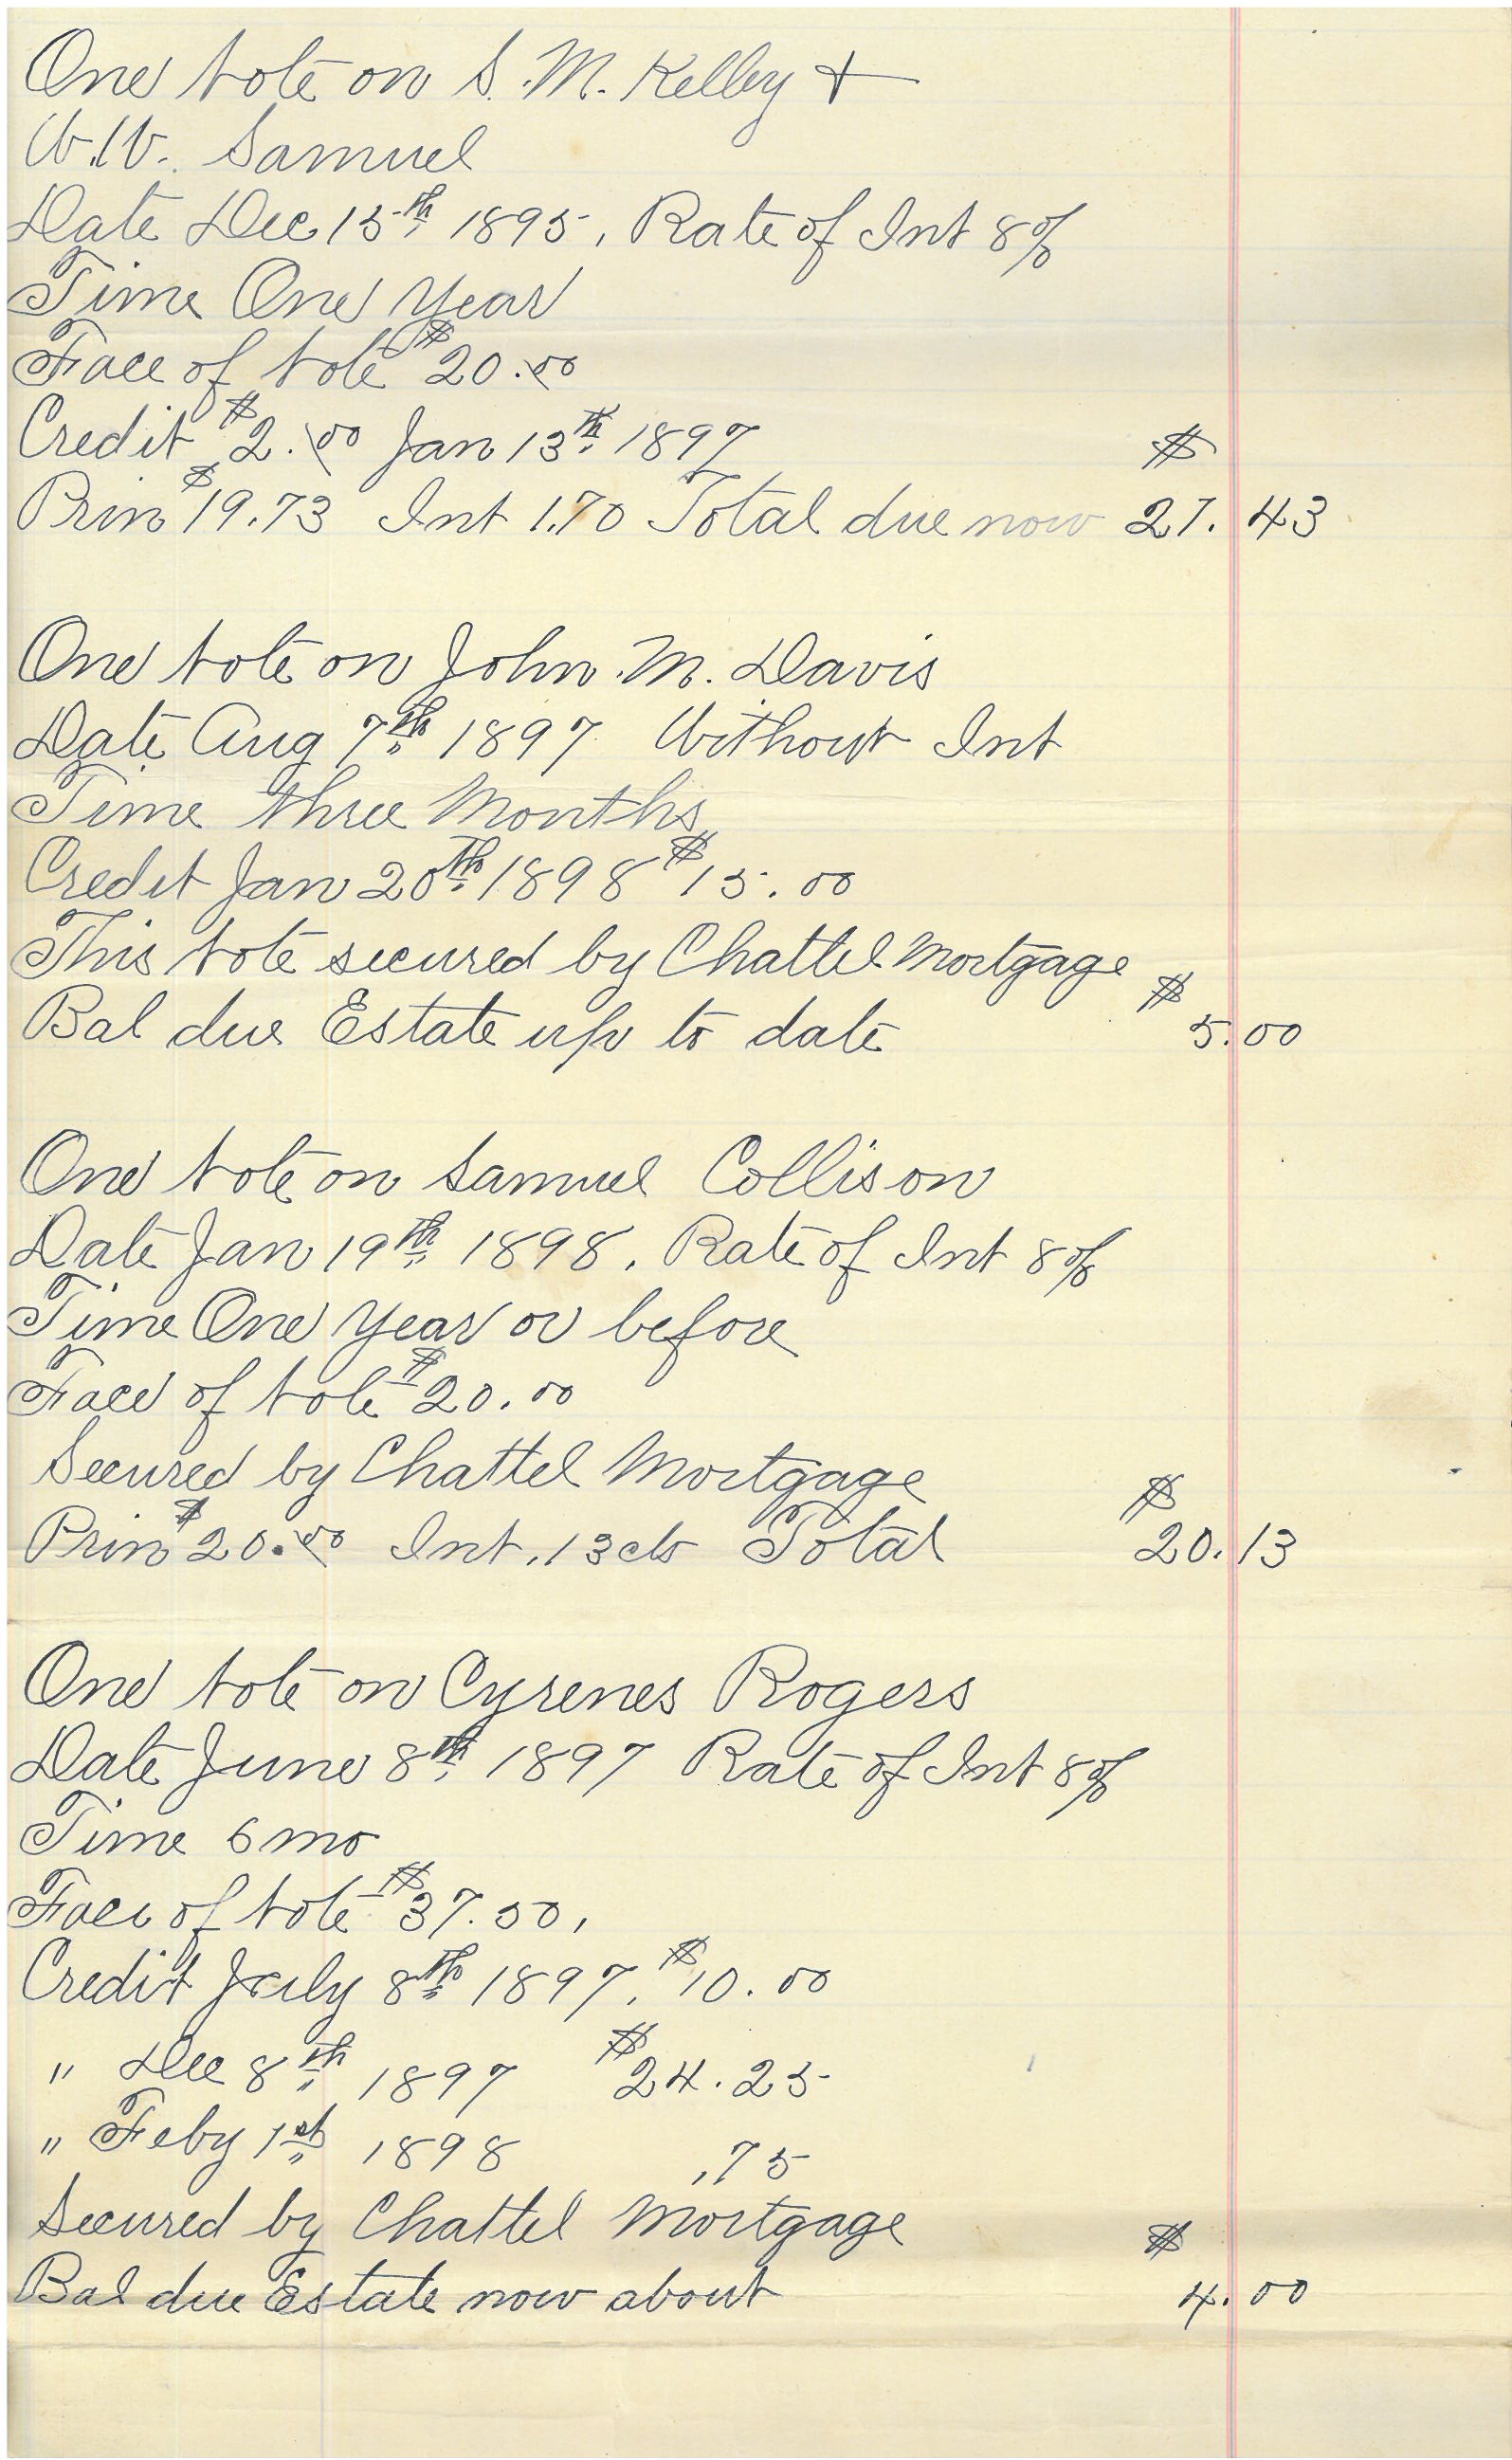 One Note on S. M. Kelley +
W. W. Samuel
Date Dec 15th 1895, Rate of Int 8%
Time One Year
Face of Note $20.00
Credit $2.00 Jan 13th 1897 $
Prin $19.73 Int 1.70 Total due now 21.43
One Note on John M. Davis
Date Aug 7th 1897 Without Int
Time three Months
Credit Jan 20th 1898 $15.00
This Note secured by Chattel Mortgage $
Bal due Estate up to date 5.00
One Note on Samuel Collison
Date Jan 19th 1898, Rate of Int 8%
Time One Year or before
Face of Note $20.00
Secured by Chattel Mortgage $
Prin $20.00 Int .13cts Total 20.13
One Note on Cyrenes Rogers
Date June 8th 1897 Rate of Int 8%
Time 6 mo
Face of Note $37.50,
Credit July 8th 1897, $10.00
" Dec 8th 1897 $24.25
" Feby 1st 1898 .75
Secured by Chattel Mortgage $
Bal due Estate now about 4.00